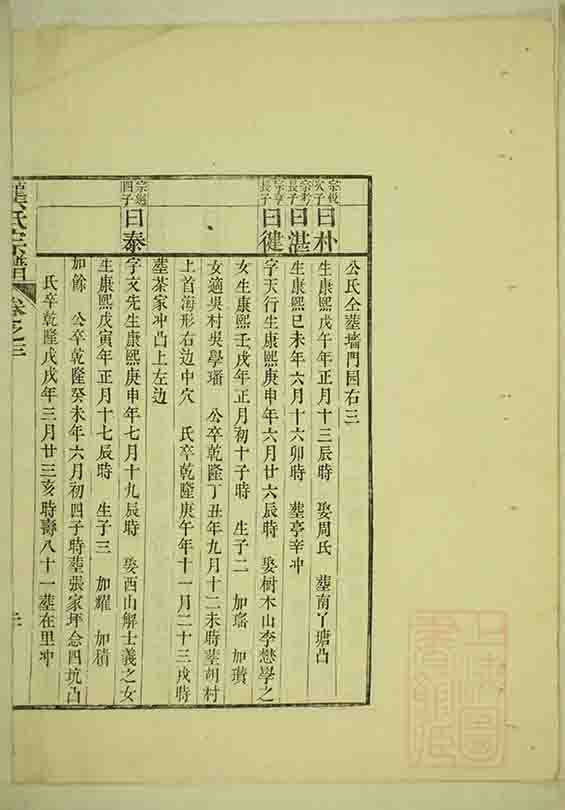 公氏仝塟墻門园右三
宗
次子
曰朴
生康熙戊午年正月十三辰時 娶周氏 塟南丫塘凸
宗考
長子
曰湛
生康熙已未年六月十六卯時 塟亭辛冲
宗
長子
曰健
字天行生康熙庚申年六月廿六辰時 娶樹木山李懋學之
女生康熙壬戌年正月初十子時 生子二 加瑤 加瓚
女適吳村吳學璠 公卒乾隆丁丑年九月十二未時塟胡村
上首海形右边中穴 氏卒乾隆庚午年十一月二十三戌時
塟茶家冲凸上左边
宗
四子
曰泰
字文先生康熙庚申年七月十九辰時 娶西山解士義之女
生康熙戊寅年正月十七辰時 生子三 加耀 加積
加餘 公卒乾隆癸未年六月初四子時塟張家坪念四坑凸
氏卒乾隆戊戌年三月廿三亥時壽八十一塟在里冲
氏宗譜 卷之三